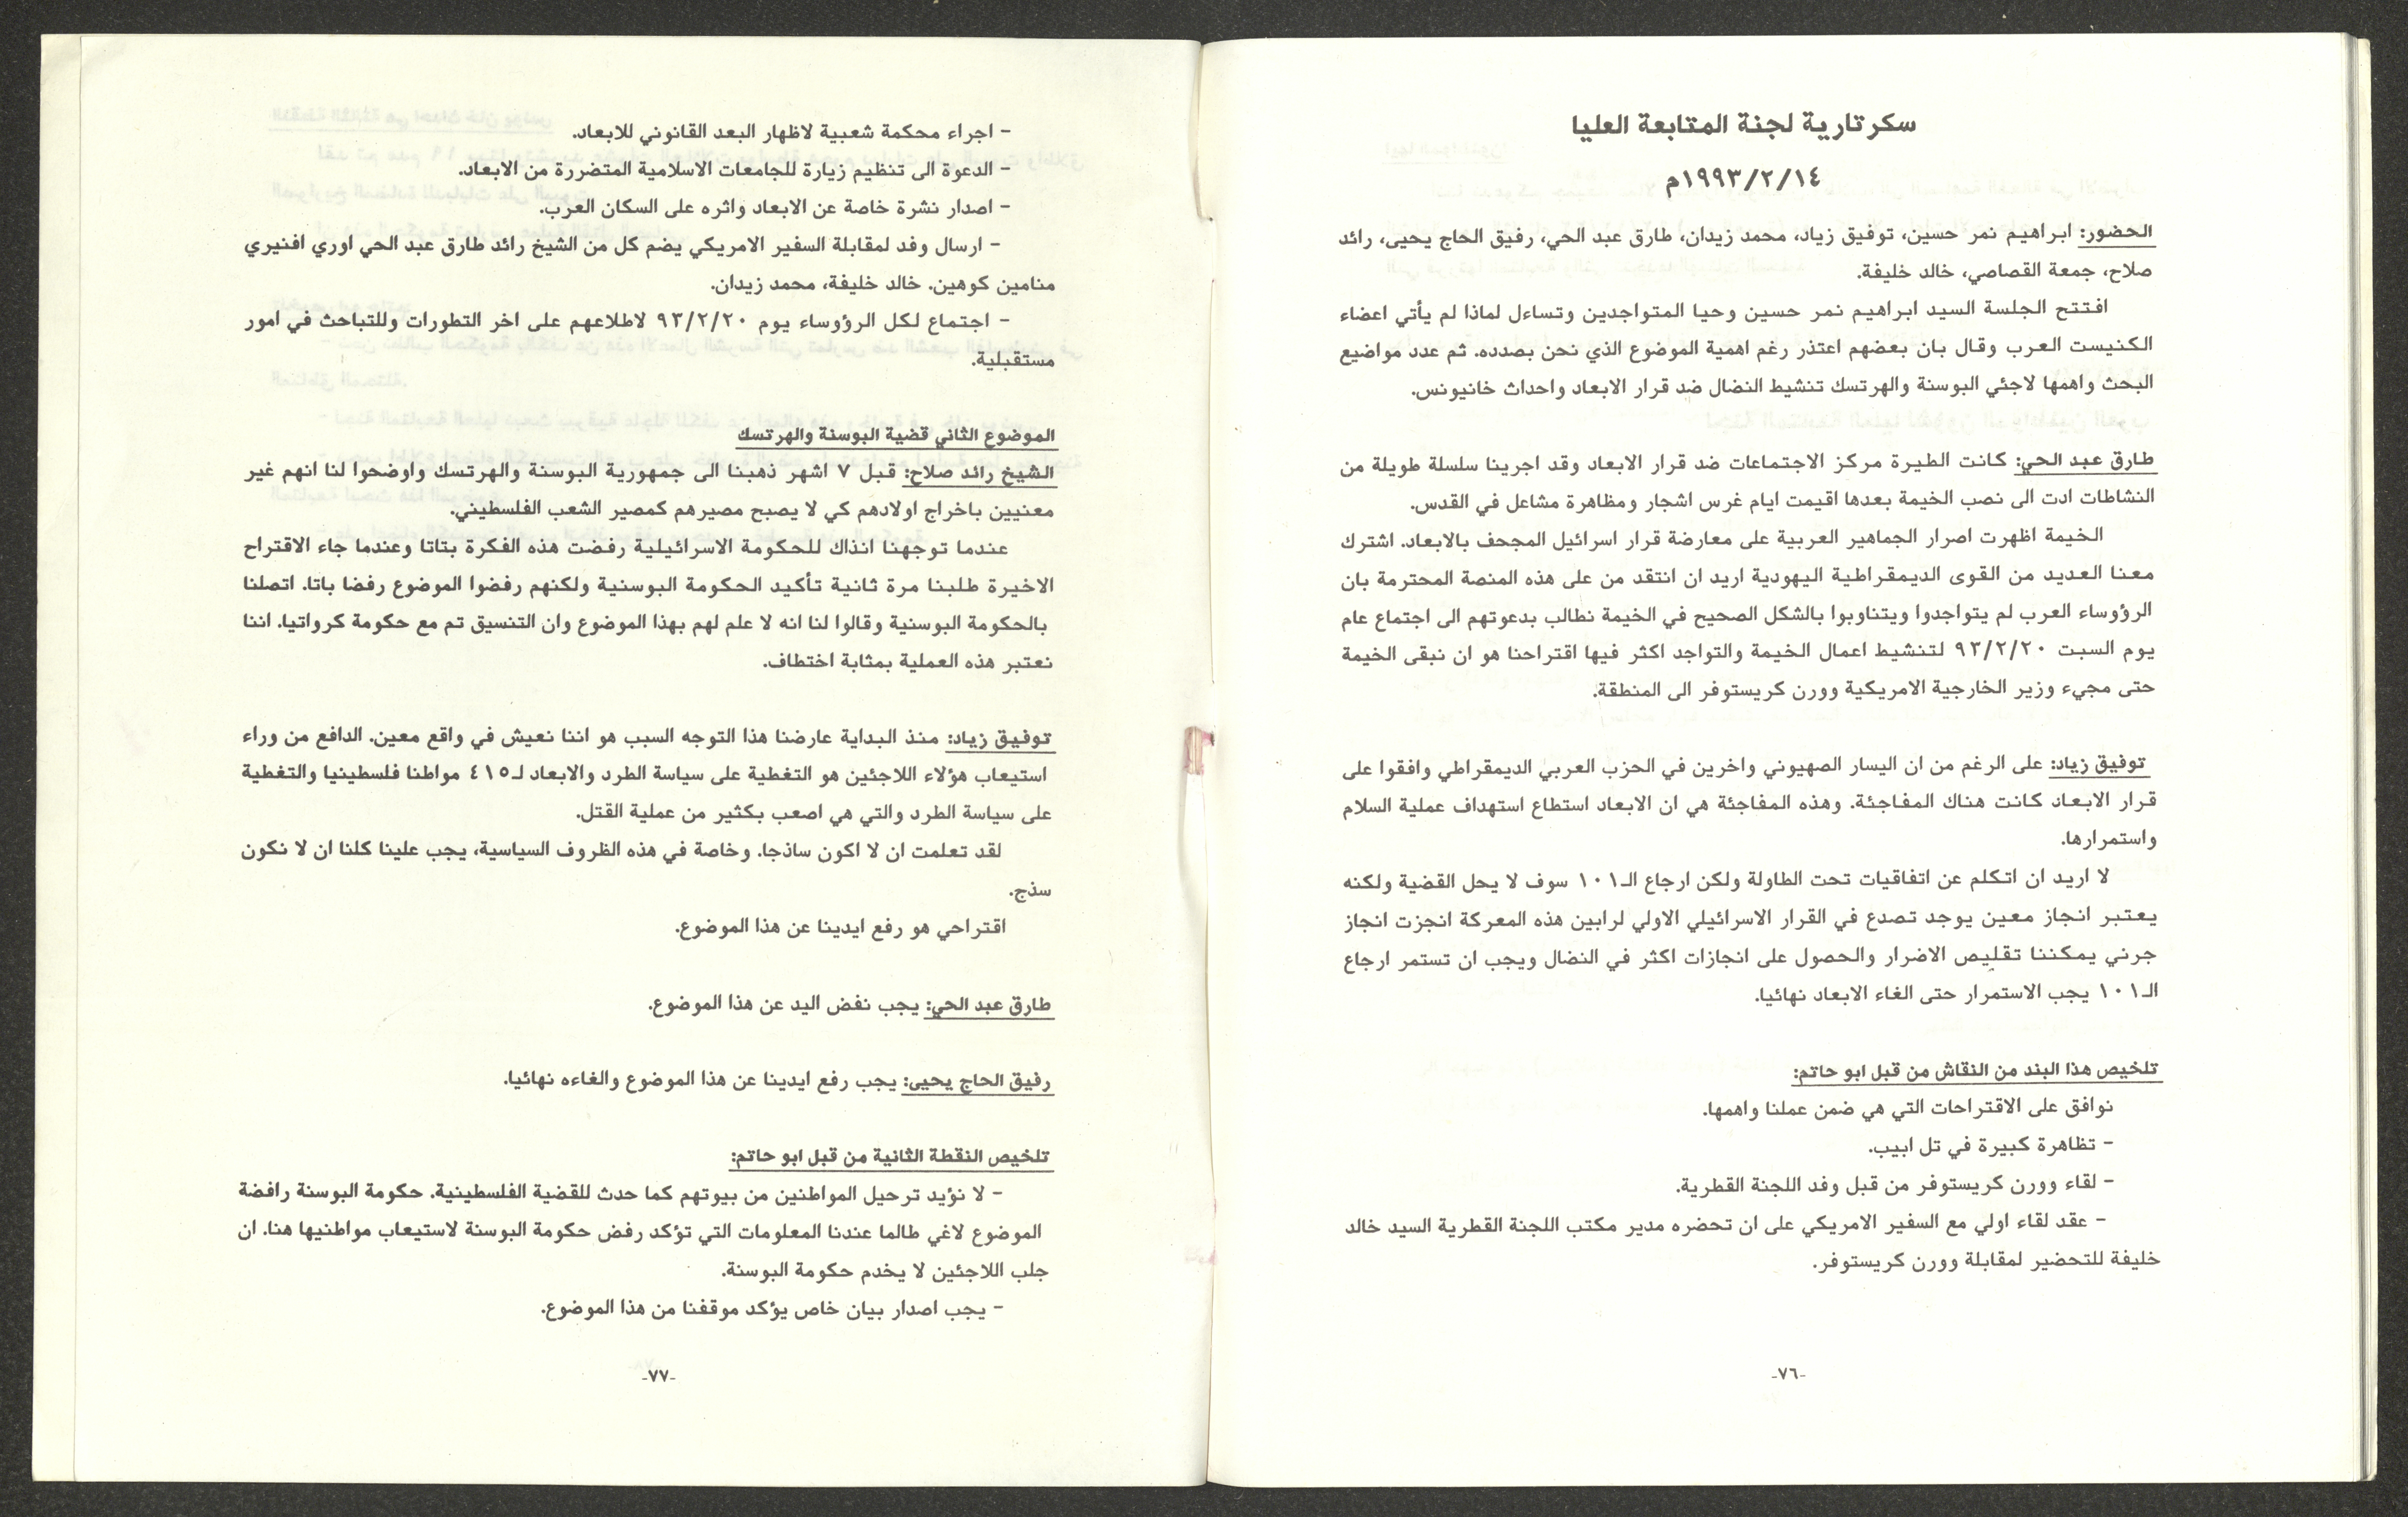 سكرتارية لجنة المتابعة العليا
١٩٩٣/٢/١٤م
الحضور: ابراهيم نمر حسين، توفيق زياد، محمد زيدان، طارق عبد الحي، رفيق الحاج يحيى، رائد
صلاح، جمعة القصاصي، خالد خليفة.
افتتح الجلسة السيد ابراهيم نمر حسين وحيا المتواجدين وتساءل لماذا لم يأتي اعضاء
الكنيست العرب وقال بان بعضهم اعتذر رغم اهمية الموضوع الذي نحن بصدده. ثم عدد مواضيع
البحث واهمها لاجئي البوسنة والهرتسك تنشيط النضال ضد قرار الابعاد واحداث خانيونس.
طارق عبد الحي: كانت الطيرة مركز الاجتماعات ضد قرار الابعاد وقد اجرينا سلسلة طويلة من
النشاطات ادت الى نصب الخيمة بعدها اقيمت ايام غرس اشجار ومظاهرة مشاعل في القدس.
الخيمة اظهرت اصرار الجماهير العربية على معارضة قرار اسرائيل المجحف بالابعاد. اشترك
معنا العديد من القوى الديمقراطية اليهودية اريد ان انتقد من على هذه المنصة المحترمة بان
الرؤوساء العرب لم يتواجدوا ويتناوبوا بالشكل الصحيح في الخيمة نطالب بدعوتهم الى اجتماع عام
يوم السبت ٩٣/٢/٢٠ لتنشيط اعمال الخيمة والتواجد اكثر فيها اقتراحنا هو ان نبقى الخيمة
حتى مجيء وزير الخارجية الامريكية وورن كريستوفر الى المنطقة.
توفيق زياد: على الرغم من ان اليسار الصهيوني واخرين في الحزب العربي الديمقراطي وافقوا على
قرار الابعاد كانت هناك المفاجئة. وهذه المفاجئة هي ان الابعاد استطاع استهداف عملية السلام
واستمرارها.
لا اريد ان اتكلم عن اتفاقيات تحت الطاولة ولكن ارجاع الـ١٠١ سوف لا يحل القضية ولكنه
يعتبر انجاز معين يوجد تصدع في القرار الاسرائيلي الاولي لرابين هذه المعركة انجزت انجاز
جرني يمكننا تقليص الاضرار والحصول على انجازات اكثر في النضال ويجب ان تستمر ارجاع
الـ١٠١ يجب الاستمرار حتى الغاء الابعاد نهائيا.
تلخيص هذا البند من النقاش من قبل ابو حاتم:
نوافق على الاقتراحات التي هي ضمن عملنا واهمها.
- تظاهرة كبيرة في تل ابيب.
- لقاء وورن كريستوفر من قبل وفد اللجنة القطرية.
- عقد لقاء اولي مع السفير الامريكي على ان تحضره مدير مكتب اللجنة القطرية السيد خالد
خليفة للتحضير لمقابلة وورن كريستوفر.
-٧٦-
- اجراء محكمة شعبية لاظهار البعد القانوني للابعاد.
- الدعوة الى تنظيم زيارة للجامعات الاسلامية المتضررة من الابعاد.
- اصدار نشرة خاصة عن الابعاد واثره على السكان العرب.
- ارسال وفد لمقابلة السفير الامريكي يضم كل من الشيخ رائد طارق عبد الحي اوري افنيري
منامين كوهين. خالد خليفة، محمد زيدان.
- اجتماع لكل الرؤوساء يوم ٩٣/٢/٢٠ لاطلاعهم على اخر التطورات وللتباحث في امور
مستقبلية.
الموضوع الثاني قضية البوسنة والهرتسك
الشيخ رائد صلاح: قبل ٧ اشهر ذهبنا الى جمهورية البوسنة والهرتسك واوضحوا لنا انهم غير
معنيين باخراج اولادهم كي لا يصبح مصيرهم كمصير الشعب الفلسطيني.
عندما توجهنا انذاك للحكومة الاسرائيلية رفضت هذه الفكرة بتاتا وعندما جاء الاقتراح
الاخيرة طلبنا مرة ثانية تأكيد الحكومة البوسنية ولكنهم رفضوا الموضوع رفضا باتا. اتصلنا
بالحكومة البوسنية وقالوا لنا انه لا علم لهم بهذا الموضوع وان التنسيق تم مع حكومة كرواتيا. اننا
نعتبر هذه العملية بمثابة اختطاف.
توفيق زياد: منذ البداية عارضنا هذا التوجه السبب هو اننا نعيش في واقع معين. الدافع من وراء
استيعاب هؤلاء اللاجئين هو التغطية على سياسة الطرد والابعاد لـ٤١٥ مواطنا فلسطينيا والتغطية
على سياسة الطرد والتي هي اصعب بكثير من عملية القتل.
لقد تعلمت ان لا اكون ساذجا. وخاصة في هذه الظروف السياسية، يجب علينا كلنا ان لا نكون
سذج.
اقتراحي هو رفع ايدينا عن هذا الموضوع.
طارق عبد الحي: يجب نفض اليد عن هذا الموضوع.
رفيق الحاج يحيى: يجب رفع ايدينا عن هذا الموضوع والغاءه نهائيا.
تلخيص النقطة الثانية من قبل ابو حاتم:
- لا نؤيد ترحيل المواطنين من بيوتهم كما حدث للقضية الفلسطينية. حكومة البوسنة رافضة
الموضوع لاغي طالما عندنا المعلومات التي تؤكد رفض حكومة البوسنة لاستيعاب مواطنيها هنا. ان
جلب اللاجئين لا يخدم حكومة البوسنة.
- يجب اصدار بيان خاص يؤكد موقفنا من هذا الموضوع.
-٧٧-